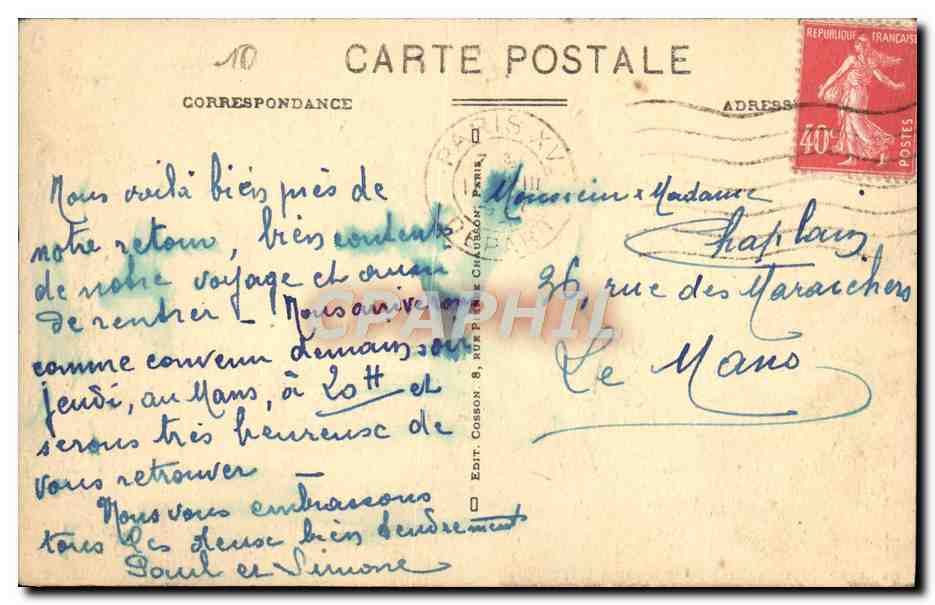 10
CARTE POSTALE
CORRESPONDANCE
ADRESSE
REPUBLIQUE FRANÇAISE
40c
POSTES
PARIS XV
Nous voilà bien près de
notre retour, bien contents
de notre voyage et aussi
de rentrer _ Nous arriverons
comme convenu demain soir
jeudi, au Mans, à 20H et
serons très heureux de
vous retrouver _
Nous vous embrassons
tous les deux bien tendrement
Paul et Simone
EDIT. COSSON. 8, RUE PIERRE CHAUSSON, PARIS
Monsieur & Madame
Chaplain
36, rue des Maraichers
Le Mans
CPAPHIL